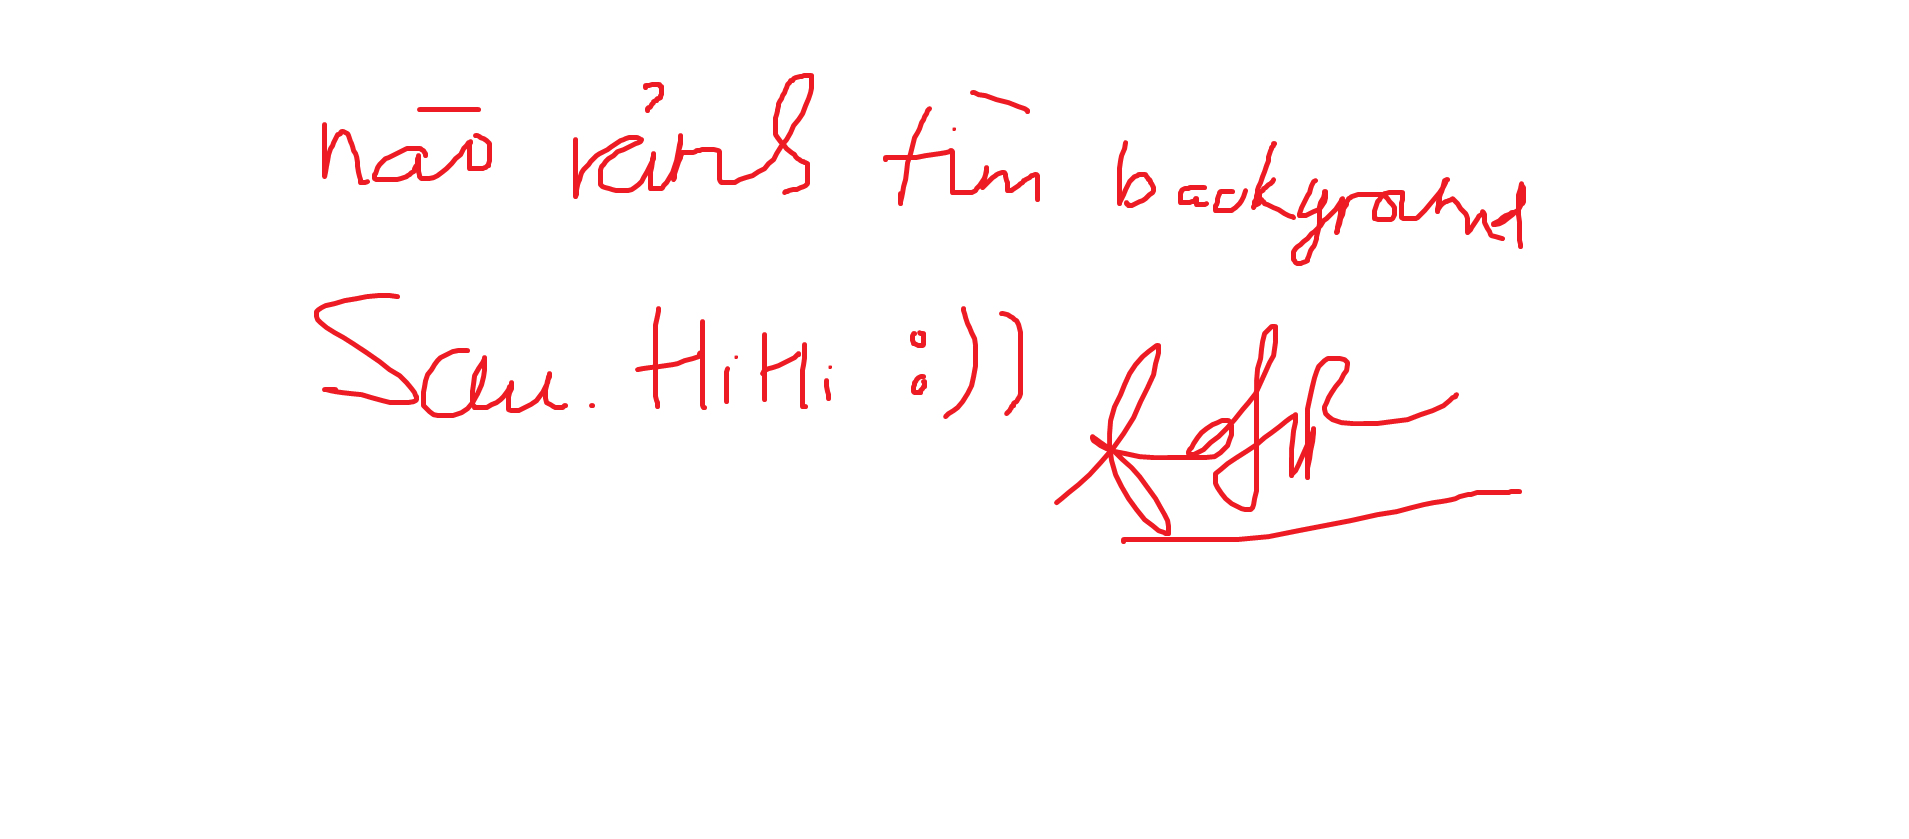 nào rảnh tìm background
Sau. HiHi :))